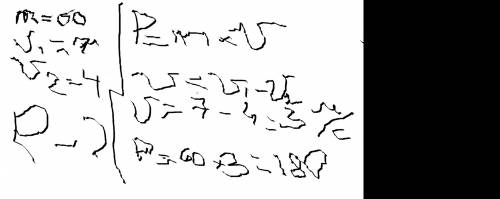 m=60
v₁=7
v₂=4
P-?
P=m×v
v=v₁-v₂
v=7-4=3 м/с
P=60×3=180